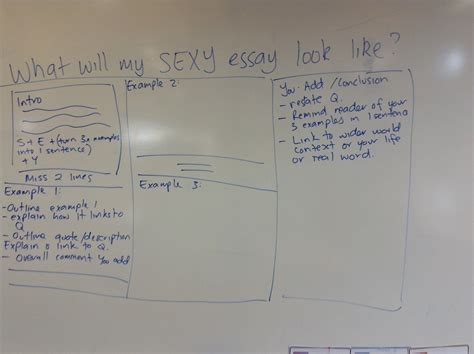 What will my SEXY essay look like?
Intro
S + E + (turn 3x examples
into 1 sentence)
+ Y
Miss 2 lines
Example 1:
- Outline example 1
- explain how it links to
Q
- Outline quote/description
Explain & link to Q.
- Overall comment You add
Example 2:
Example 3:
You: Add / Conclusion
- restate Q.
- Remind reader of your
3 examples in 1 sentence
- Link to wider world
context or your life
or real word.